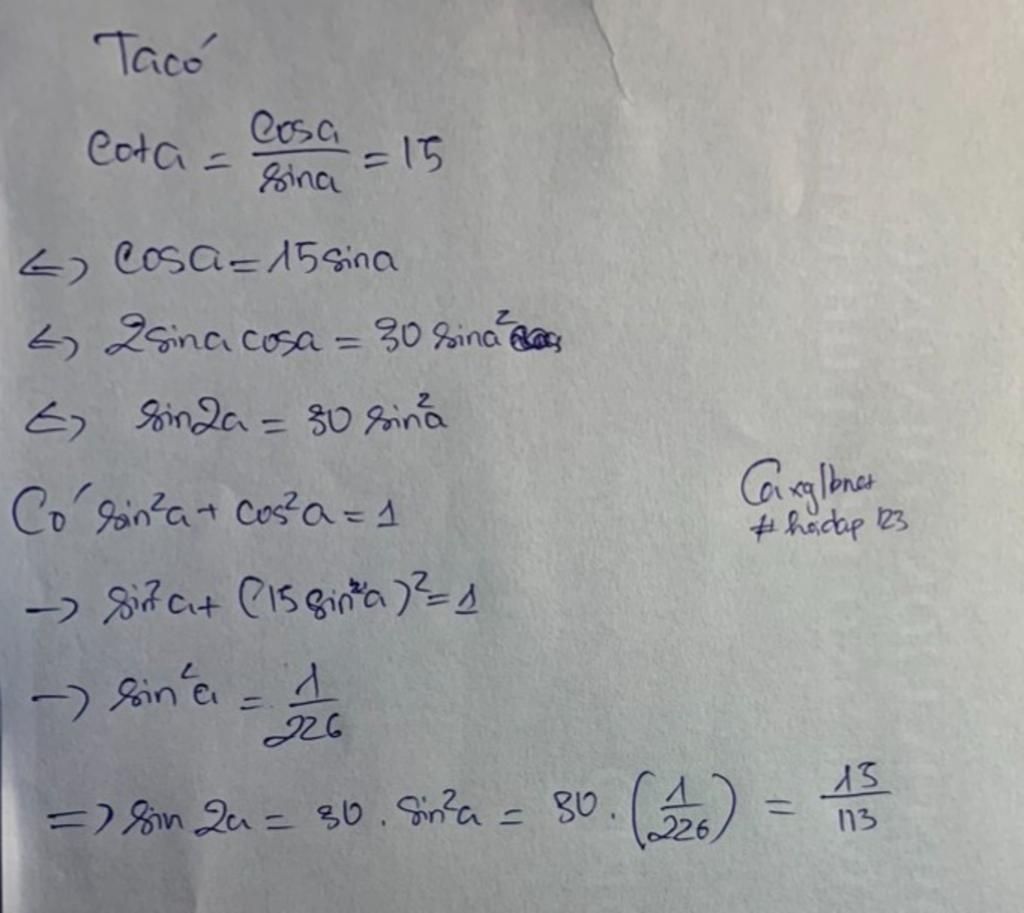 Ta có
cota = cosa/sina = 15
<=> cosa = 15sina
<=> 2sina cosa = 30 sina²
<=> sin2a = 30 sin²a
Có sin²a + cos²a = 1
-> sin²a + (15 sin a)² = 1
-> sin²a = 1/226
=> sin 2a = 30 . sin²a = 30 . (1/226) = 15/113
# hoidap 123